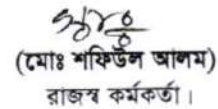 (মোঃ শফিউল আলম)
রাজস্ব কর্মকর্তা।